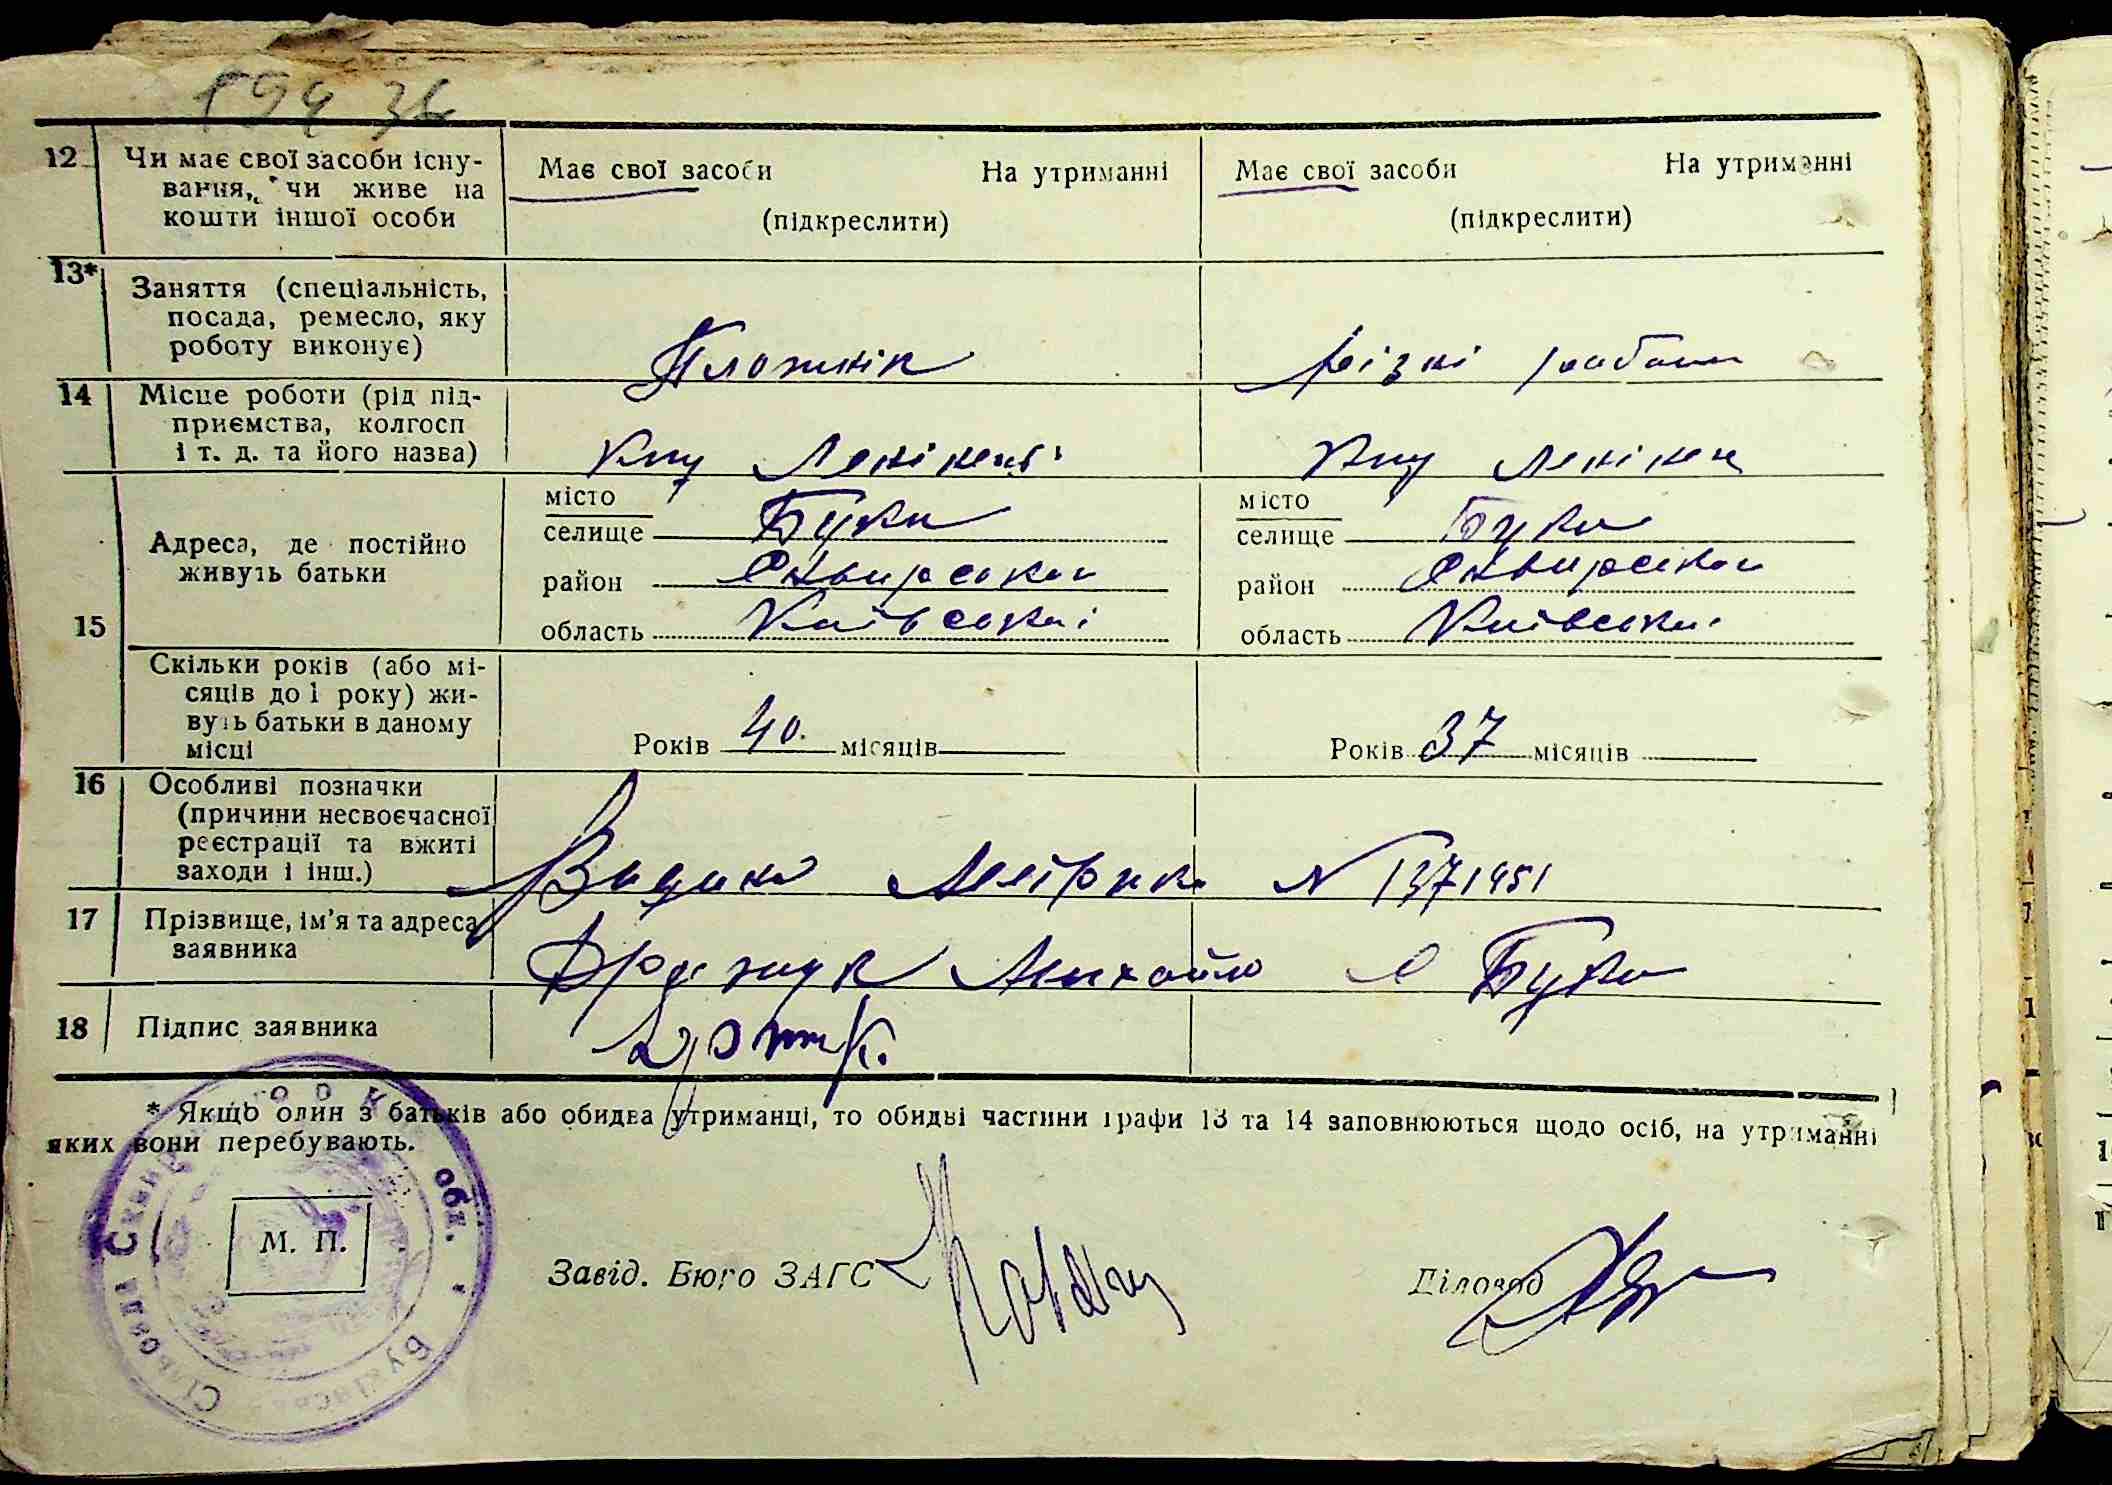 12 Чи має свої засоби існу-
вання, чи живе на
кошти іншої особи
Має свої засоби На утриманні
(підкреслити)
Має свої засоби На утриманні
(підкреслити)
13* Заняття (спеціальність,
посада, ремесло, яку
роботу виконує)
Пложнік
різні работи
14 Місце роботи (рід під-
приємства, колгосп
і т. д. та його назва)
15 Адреса, де постійно
живуть батьки
місто
селище Буки
район Сквирський
область Київська
місто
селище Буки
район Сквирський
область Київська
Скільки років (або мі-
сяців до 1 року) жи-
вуть батьки в даному
місці
Років 40. місяців
Років 37 місяців
16 Особливі позначки
(причини несвоєчасної
реєстрації та вжиті
заходи і інш.)
Видано Метрика N 1371951
17 Прізвище, ім'я та адреса
заявника
Михайло с Буки
18 Підпис заявника
* Якщо один з батьків або обидва утриманці, то обидві частини графи 13 та 14 заповнюються щодо осіб, на утриманні
яких вони перебувають.
М. П.
Завід. Бюро ЗАГС
Діловод
обл.